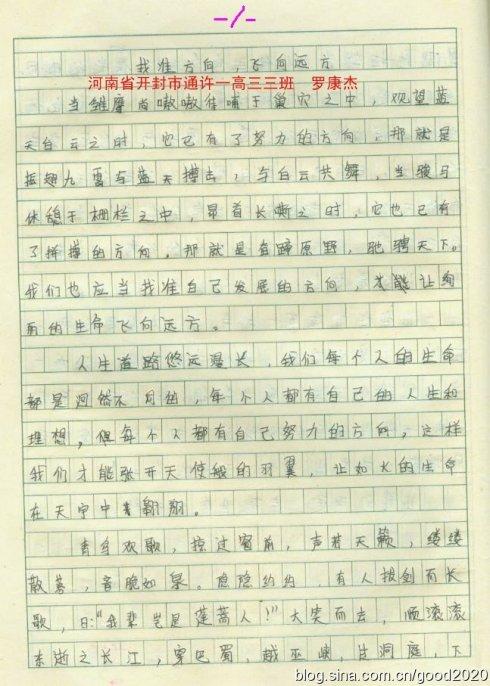 -1-
找准方向，飞向远方
河南省开封市通许一高三三班 罗康杰
当雏鹰尚嗷嗷待哺于巢穴之中，观望蓝
天白云之时，它已有了努力的方向，那就是
振翅九霄与蓝天搏击，与白云共舞，当骏马
休憩于栅栏之中，昂首长嘶之时，它也已有
了拼搏的方向，那就是奋蹄原野，驰骋天下。
我们也应当找准自己发展的方向，才能让绚
丽的生命飞向远方。
人生道路悠远漫长，我们每个人的生命
都是迥然不同的，每个人都有自己的人生和
理想，但每个人都有自己努力的方向，这样
我们才能张开天使般的羽翼，让如火的生命
在天宇中翱翔。
青鸟欢歌，掠过窗前，声若天籁，缕缕
散落，音脆如泉。隐隐约约，有人拔剑而长
歌，曰："我辈岂是蓬蒿人！"大笑而去，顺滚滚
东逝之长江，穿巴蜀，越巫峡，出洞庭，下
blog.sina.com.cn/good2020